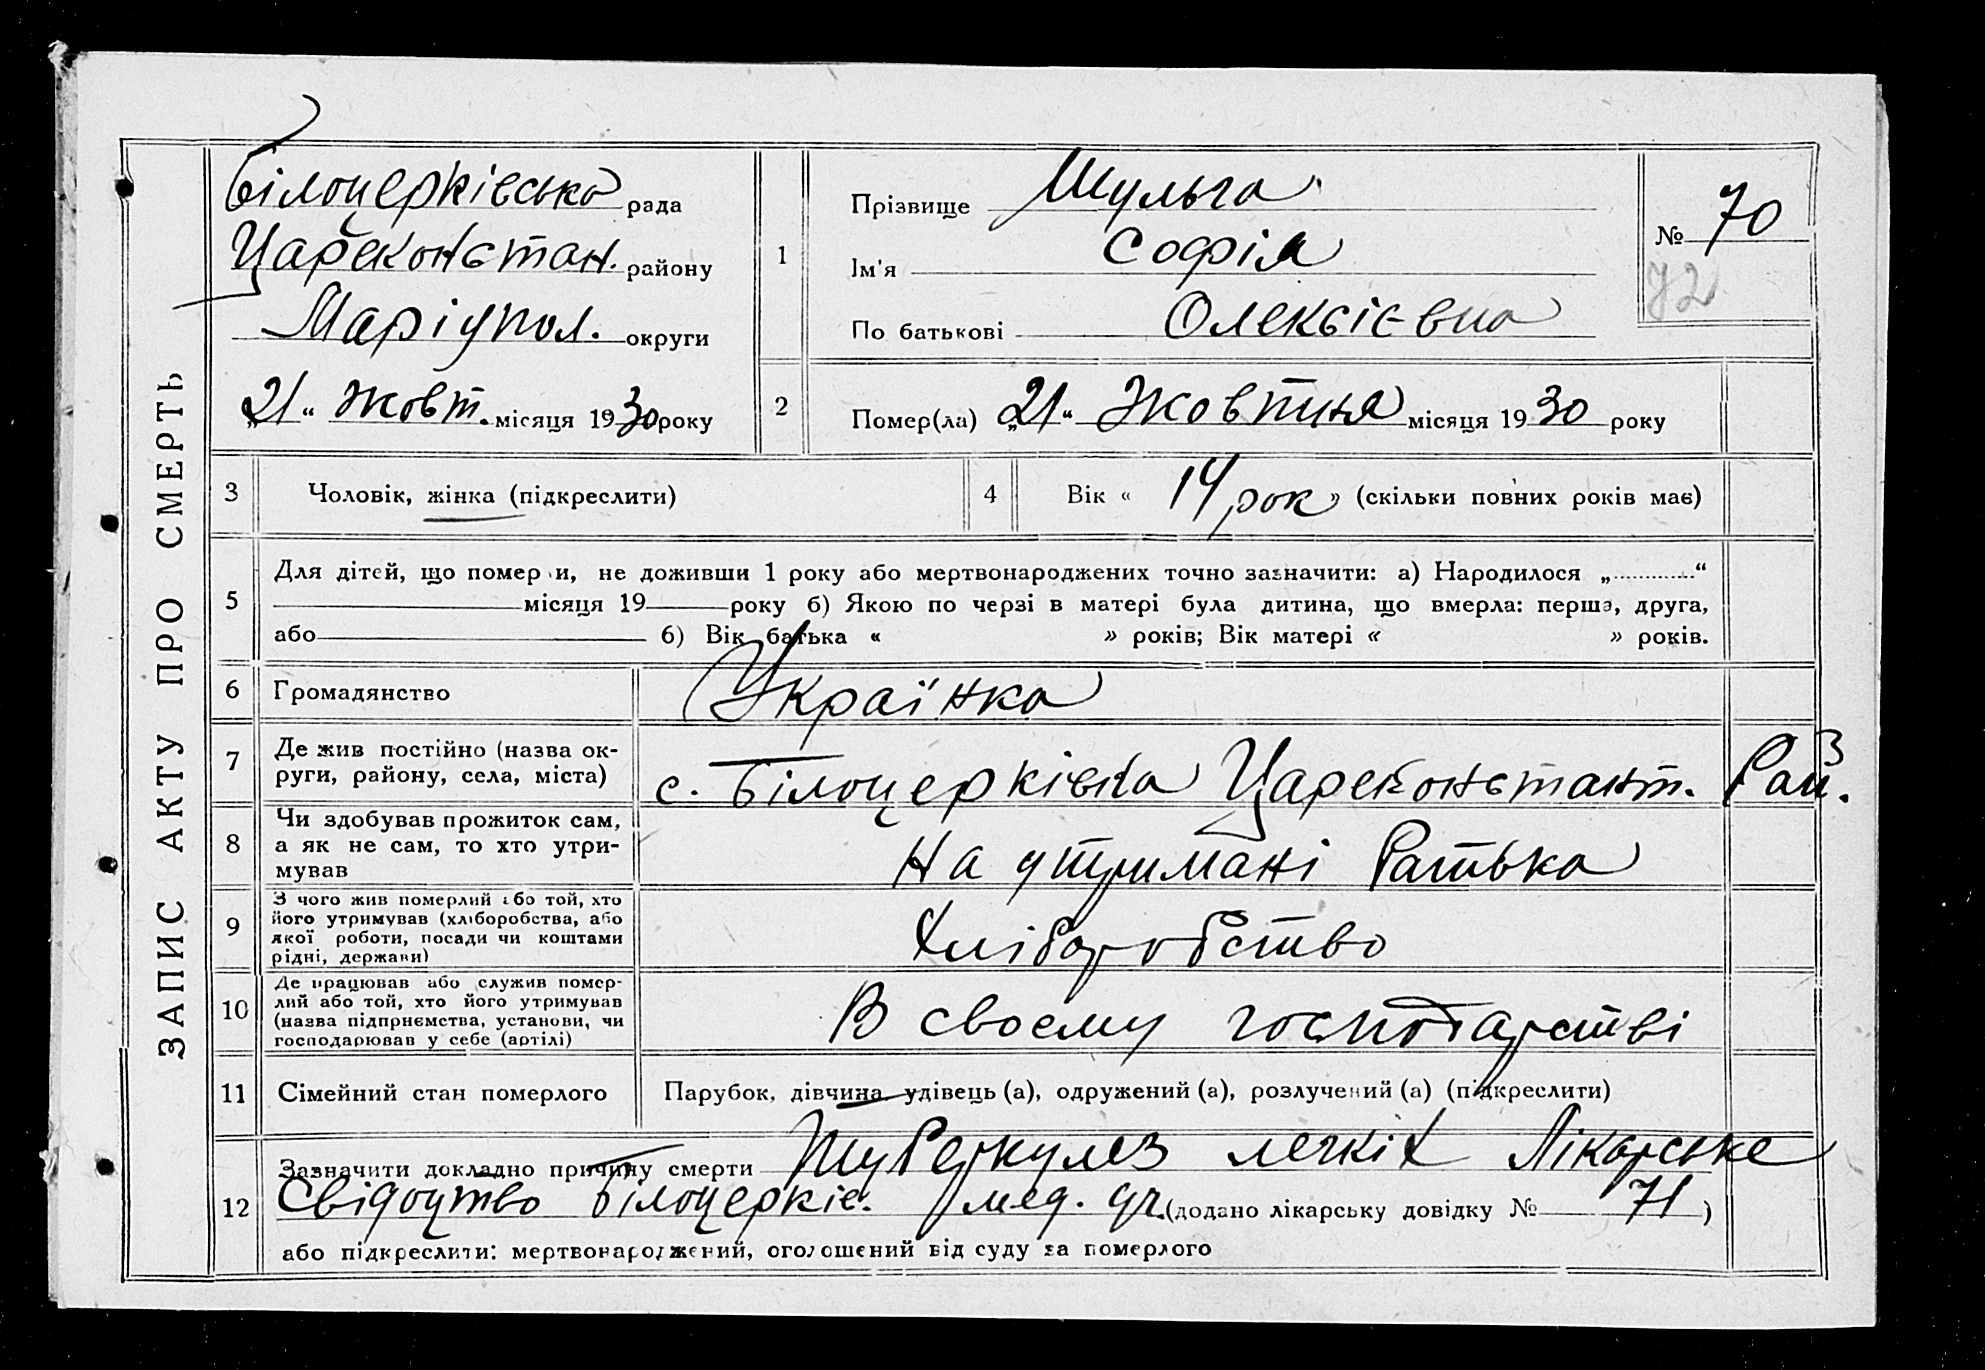 ЗАПИС АКТУ ПРО СМЕРТЬ
Білоцерківська рада
Цареконстан. району
Маріупол. округи
„21“ Жовт. місяця 1930 року
1
Прізвище Шульга
Ім'я Софія
По батькові Олексієвна
№ 70
72
2
Помер(ла) „21“ Жовтня місяця 1930 року
3 Чоловік, жінка (підкреслити)
4 Вік « 14 рок » (скільки повних років має)
5
Для дітей, що померли, не доживши 1 року або мертвонароджених точно зазначити: а) Народилося „ “
місяця 19 року б) Якою по черзі в матері була дитина, що вмерла: перша, друга,
або б) Вік батька « » років; Вік матері « » років.
6 Громадянство Українка
7
Де жив постійно (назва ок-
руги, району, села, міста)
с. Білоцерківка Цареконстант. Рай.
8
Чи здобував прожиток сам,
а як не сам, то хто утри-
мував
На утримані Батька
9
З чого жив померлий або той, хто
його утримував (хліборобства, або
якої роботи, посади чи коштами
рідні, держави)
Хліборобство
10
Де працював або служив помер-
лий або той, хто його утримував
(назва підприємства, установи, чи
господарював у себе (артілі)
В своему господарстві
11 Сімейний стан померлого
Парубок, дівчина удівець (а), одружений (а), розлучений (а) (підкреслити)
12
Зазначити докладно причину смерти Туберкулез легких Лікарське
Свідоцтво Білоцерків. мед. уч. (додано лікарську довідку № 71 )
або підкреслити: мертвонароджений, оголошений від суду за померлого